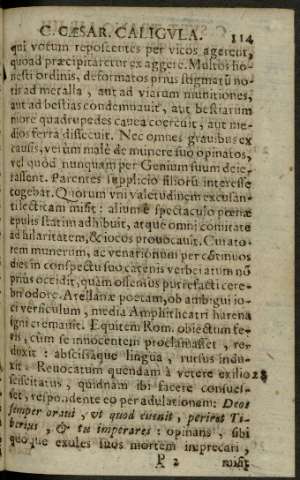 C. CÆSAR. CALIGVLA. 114
qui votum reposcentes per vicos agerent,
quoad præcipitaretur ex aggere. Multos ho-
nesti ordinis, deformatos prius stigmatũ no-
tis ad metalla, aut ad viarum munitiones,
aut ad bestias condemnauit, aut bestiarum
more quadrupedes cauea coercuit, aut me-
dios serra dissecuit. Nec omnes grauibus ex
causis, verùm malè de munere suo opinatos,
vel quòd nunquam per Genium suum deie-
rassent. Parentes supplicio filiorũ interesse
cogebat. Quorum vni valetudinem excusan-
ti lecticam misit: alium è spectaculo pœnæ
epulis statim adhibuit, atque omni comitate
ad hilaritatem, & iocos prouocauit. Curato-
rem munerum, ac venationum per cõtinuos
dies in conspectu suo catenis verberatum nõ
prius occidit, quàm offensus putrefacti cere-
bri odore. Atellanæ poetam, ob ambigui io-
ci versiculum, media Amphitheatri harena
igni cremauit. Equitem Rom. obiectum fe-
ris, cùm se innocentem proclamasset, re-
duxit: abscisaque lingua, rursus indu-
xit. Reuocatum quendam à vetere exilio 28
sciscitatus, quidnam ibi facere consues-
set, respondente eo per adulationem: Deos
semper oraui, vt quod euenit, periret Ti-
berius, & tu imperares: opinans, sibi
quoque exules suos mortem imprecari,
P 2 misit